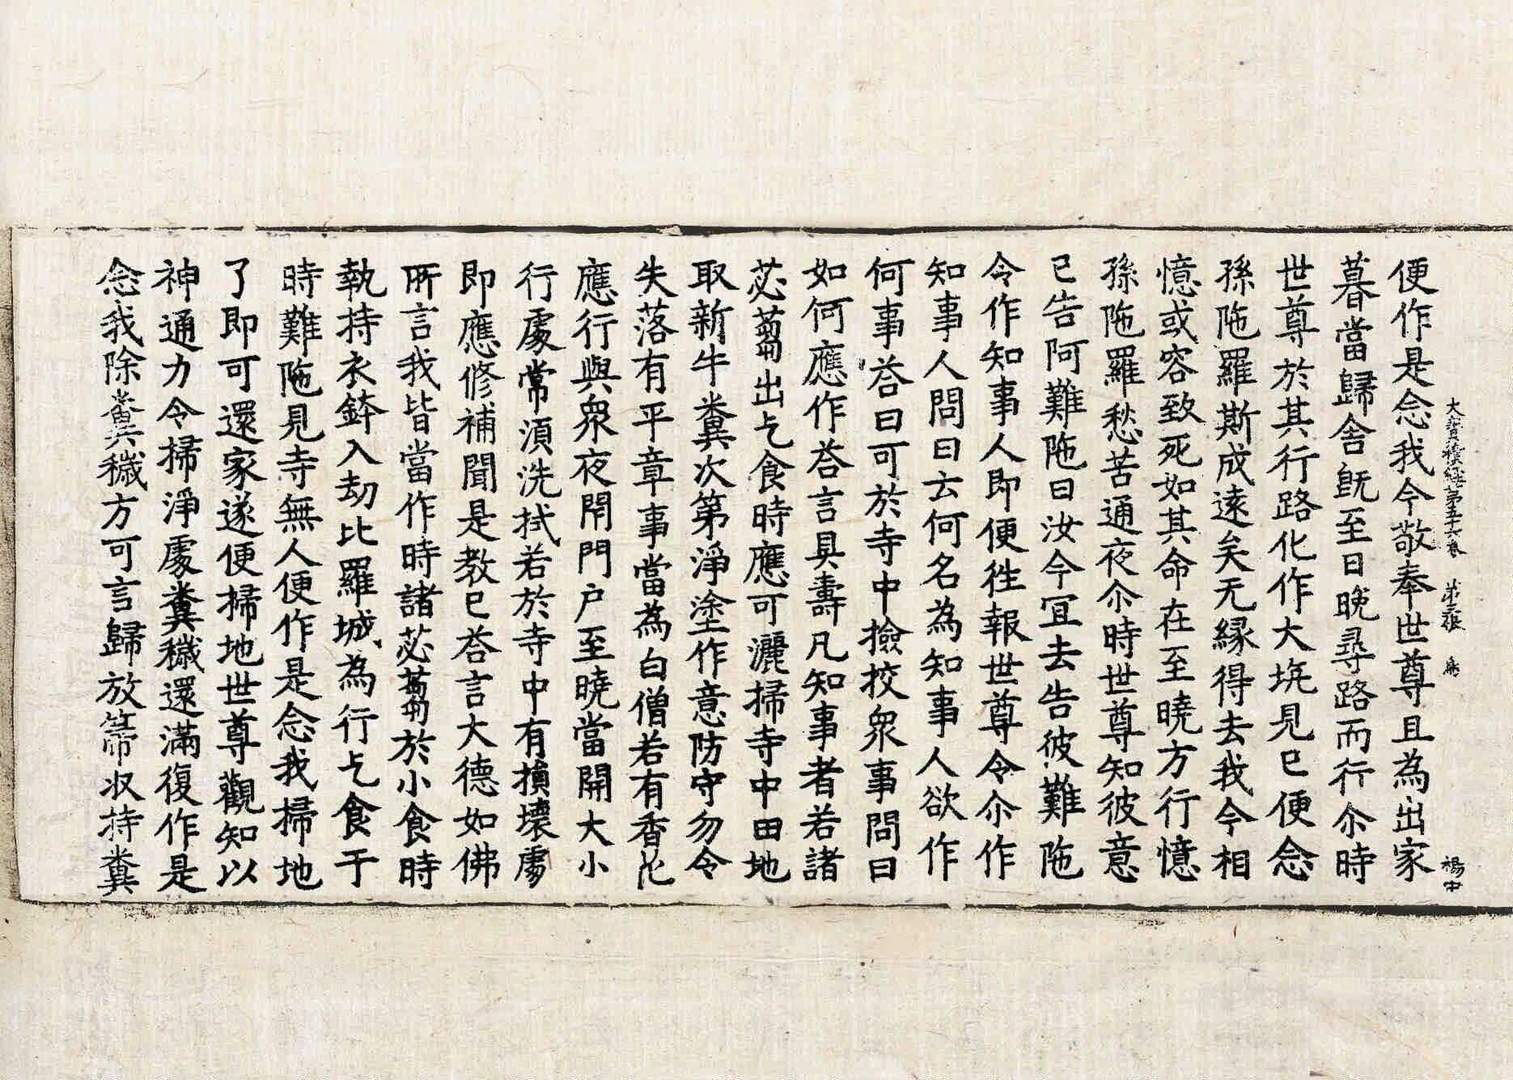 大寶積經第五十六卷 第三張 楊中
便作是念我今敬奉世尊且為出家
暮當歸舍既至日晚尋路而行尒時
世尊於其行路化作大坑見已便念
孫陁羅斯成遠矣无緣得去我今相
憶或容致死如其命在至曉方行憶
孫陁羅愁苦通夜尒時世尊知彼意
已告阿難陁曰汝今冝去告彼難陁
令作知事人即便徃報世尊令尒作
知事人問曰云何名為知事人欲作
何事荅曰可於寺中撿挍衆事問曰
如何應作荅言具壽凡知事者若諸
苾蒭出乞食時應可灑掃寺中田地
取新牛糞次第淨塗作意防守勿令
失落有平章事當為白僧若有香花
應行與衆夜閇門戶至曉當開大小
行處常湏洗拭若於寺中有損壞處
即應修補聞是教已荅言大德如佛
所言我皆當作時諸苾蒭於小食時
執持衣鉢入劫比羅城為行乞食于
時難陁見寺無人便作是念我掃地
了即可還家遂便掃地世尊觀知以
神通力令掃淨處糞穢還滿復作是
念我除糞穢方可言歸放箒収持糞